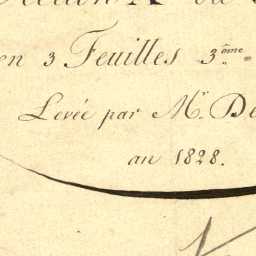 en 3 Feuilles 3.ème
Levée par Mr. De
au 1828.